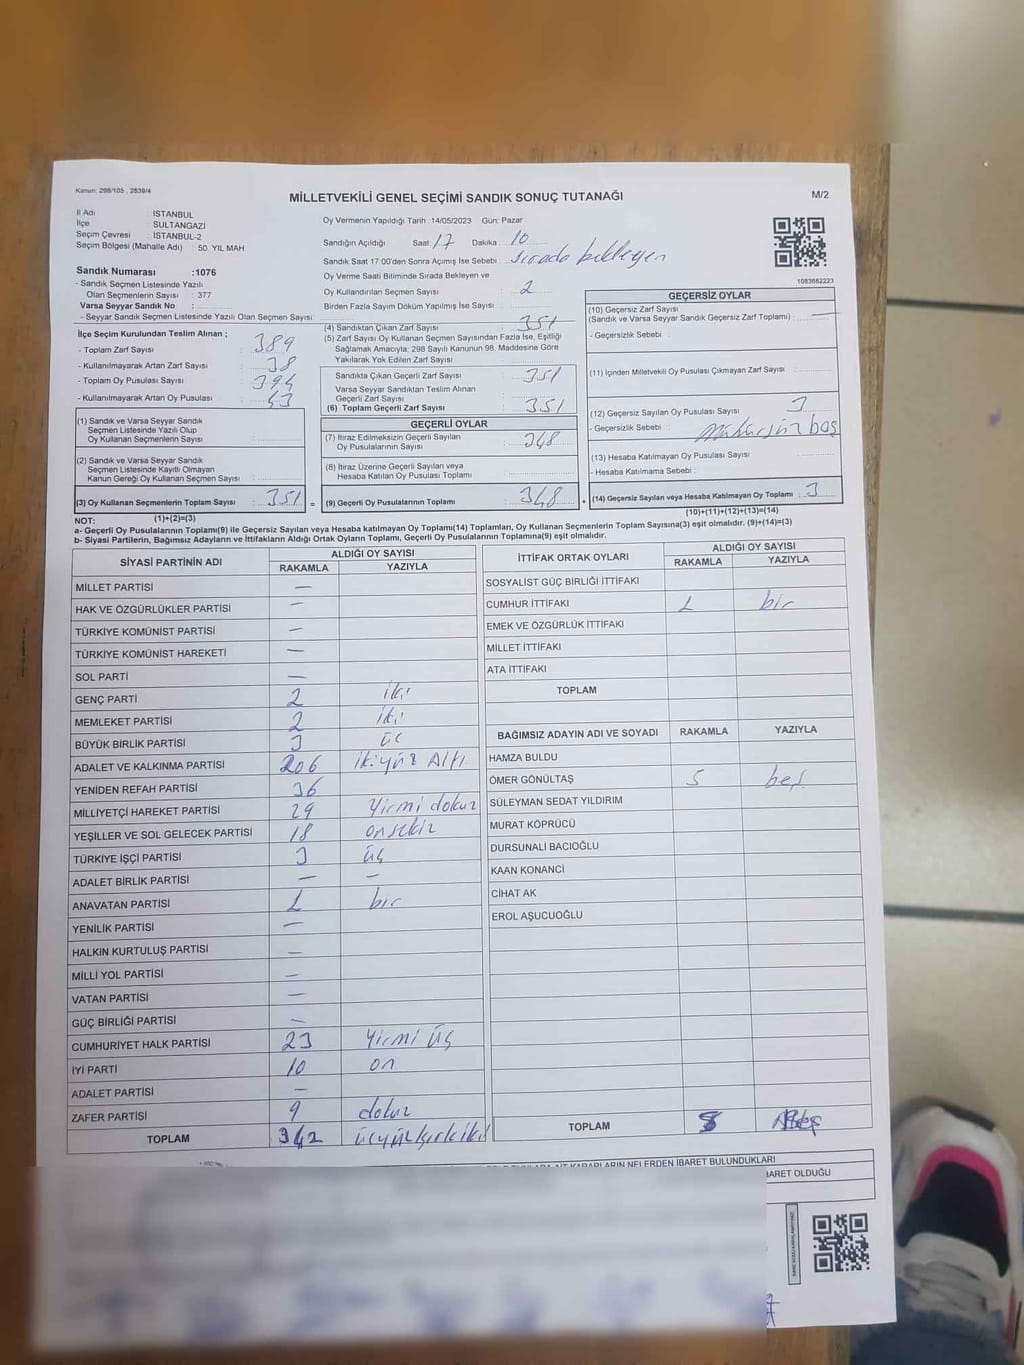 Kanun: 298/105 , 2839/4
MİLLETVEKİLİ GENEL SEÇİMİ SANDIK SONUÇ TUTANAĞI
M/2
İl Adı : İSTANBUL
İlçe : SULTANGAZİ
Seçim Çevresi : İSTANBUL-2
Seçim Bölgesi (Mahalle Adı) : 50. YIL MAH
Oy Vermenin Yapıldığı Tarih : 14/05/2023 Gün: Pazar
Sandığın Açıldığı Saat: 17 Dakika : 10
Sandık Saat 17:00'den Sonra Açımış İse Sebebi : sırada bekleyen
Oy Verme Saati Bitiminde Sırada Bekleyen ve
Oy Kullandırılan Seçmen Sayısı : 2
Birden Fazla Sayım Döküm Yapılmış İse Sayısı :
Sandık Numarası : 1076
- Sandık Seçmen Listesinde Yazılı
Olan Seçmenlerin Sayısı : 377
Varsa Seyyar Sandık No :
- Seyyar Sandık Seçmen Listesinde Yazılı Olan Seçmen Sayısı :
1083682223
İlçe Seçim Kurulundan Teslim Alınan ;
- Toplam Zarf Sayısı : 389
- Kullanılmayarak Artan Zarf Sayısı : 38
- Toplam Oy Pusulası Sayısı : 394
- Kullanılmayarak Artan Oy Pusulası : 43
(1) Sandık ve Varsa Seyyar Sandık
Seçmen Listesinde Yazılı Olup
Oy Kullanan Seçmenlerin Sayısı :
(2) Sandık ve Varsa Seyyar Sandık
Seçmen Listesinde Kayıtlı Olmayan
Kanun Gereği Oy Kullanan Seçmen Sayısı :
(3) Oy Kullanan Seçmenlerin Toplam Sayısı : 351 =
(1)+(2)=(3)
(4) Sandıktan Çıkan Zarf Sayısı : 351
(5) Zarf Sayısı Oy Kullanan Seçmen Sayısından Fazla İse, Eşitliği
Sağlamak Amacıyla; 298 Sayılı Kanunun 98. Maddesine Göre
Yakılarak Yok Edilen Zarf Sayısı
Sandıkta Çıkan Geçerli Zarf Sayısı : 351
Varsa Seyyar Sandıktan Teslim Alınan
Geçerli Zarf Sayısı :
(6) Toplam Geçerli Zarf Sayısı : 351
GEÇERLİ OYLAR
(7) İtiraz Edilmeksizin Geçerli Sayılan
Oy Pusulalarının Sayısı : 348
(8) İtiraz Üzerine Geçerli Sayılan veya
Hesaba Katılan Oy Pusulası Toplamı :
(9) Geçerli Oy Pusulalarının Toplamı : 348 +
GEÇERSİZ OYLAR
(10) Geçersiz Zarf Sayısı
(Sandık ve Varsa Seyyar Sandık Geçersiz Zarf Toplamı) : —
- Geçersizlik Sebebi :
(11) İçinden Milletvekili Oy Pusulası Çıkmayan Zarf Sayısı :
(12) Geçersiz Sayılan Oy Pusulası Sayısı : 3
- Geçersizlik Sebebi : mühürsüz boş
(13) Hesaba Katılmayan Oy Pusulası Sayısı :
- Hesaba Katılmama Sebebi :
(14) Geçersiz Sayılan veya Hesaba Katılmayan Oy Toplamı : 3
(10)+(11)+(12)+(13)=(14)
NOT:
a- Geçerli Oy Pusulalarının Toplamı(9) ile Geçersiz Sayılan veya Hesaba katılmayan Oy Toplamı(14) Toplamları, Oy Kullanan Seçmenlerin Toplam Sayısına(3) eşit olmalıdır. (9)+(14)=(3)
b- Siyasi Partilerin, Bağımsız Adayların ve İttifakların Aldığı Ortak Oyların Toplamı, Geçerli Oy Pusulalarının Toplamına(9) eşit olmalıdır.
SİYASİ PARTİNİN ADI ALDIĞI OY SAYISI
RAKAMLA YAZIYLA
MİLLET PARTİSİ —
HAK VE ÖZGÜRLÜKLER PARTİSİ —
TÜRKİYE KOMÜNİST PARTİSİ —
TÜRKİYE KOMÜNİST HAREKETİ —
SOL PARTİ —
GENÇ PARTİ 2 iki
MEMLEKET PARTİSİ 2 iki
BÜYÜK BİRLİK PARTİSİ 3 üç
ADALET VE KALKINMA PARTİSİ 206 ikiyüz Altı
YENİDEN REFAH PARTİSİ 36
MİLLİYETÇİ HAREKET PARTİSİ 29 Yirmi dokuz
YEŞİLLER VE SOL GELECEK PARTİSİ 18 onsekiz
TÜRKİYE İŞÇİ PARTİSİ 3 üç
ADALET BİRLİK PARTİSİ — —
ANAVATAN PARTİSİ 1 bir
YENİLİK PARTİSİ —
HALKIN KURTULUŞ PARTİSİ —
MİLLİ YOL PARTİSİ —
VATAN PARTİSİ —
GÜÇ BİRLİĞİ PARTİSİ —
CUMHURİYET HALK PARTİSİ 23 Yirmi üç
İYİ PARTİ 10 on
ADALET PARTİSİ —
ZAFER PARTİSİ 9 dokuz
TOPLAM 342 üçyüzkırkiki
İTTİFAK ORTAK OYLARI ALDIĞI OY SAYISI
RAKAMLA YAZIYLA
SOSYALİST GÜÇ BİRLİĞİ İTTİFAKI
CUMHUR İTTİFAKI 1 bir
EMEK VE ÖZGÜRLÜK İTTİFAKI
MİLLET İTTİFAKI
ATA İTTİFAKI
TOPLAM
BAĞIMSIZ ADAYIN ADI VE SOYADI RAKAMLA YAZIYLA
HAMZA BULDU
ÖMER GÖNÜLTAŞ 5 beş
SÜLEYMAN SEDAT YILDIRIM
MURAT KÖPRÜCÜ
DURSUNALİ BACIOĞLU
KAAN KONANCİ
CİHAT AK
EROL AŞUCUOĞLU
TOPLAM 5 Beş
KARARLARIN NELERDEN İBARET BULUNDUKLARI
BARET OLDUĞU